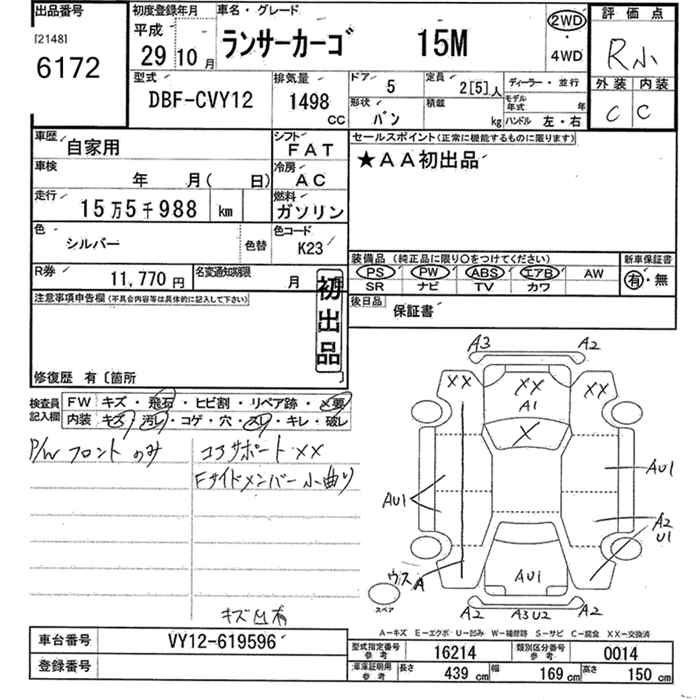 出品番号 初度登録年月 車名・グレード 評価点
[2148] 平成 ランサーカーゴ 15M 2WD ・ 4WD R小
6172 29年 10月
型式 排気量 ドア 定員 ディーラー・並行 外装 内装
DBF-CVY12 1498 CC 5 2[5]人 モデル年式 年 C C
形状 バン 積載 kg ハンドル 左・右
車歴 自家用 シフト FAT セールスポイント(正常に機能するものに限ります)
車検 年 月( 日) 冷房 AC ★AA初出品
走行 15万5千988 km 燃料 ガソリン
色 シルバー 色替 色コード K23
装備品 (純正品に限り○をつけてください) 新車保証書
PS PW ABS エアB AW 有・無
SR ナビ TV カワ
R券 11,770円 名変通知期限 月
後日品 保証書
注意事項申告欄(不具合内容等は具体的に記入して下さい) 初出品
修復歴 有〔箇所
検査員記入欄 FW キズ・飛石・ヒビ割・リペア跡・メ要
内装 キズ・汚レ・コゲ・穴・スレ・キレ・破レ
P/W フロントのみ
コアサポート XX
Fサイドメンバー小曲り
キズ凹有
A3 A2
XX XX XX
A1
X
AU1 AU1
A2
U1
ウスA
スペア
AU1
A2 A3U2 A2
A-キズ E-エクボ U-凹み W-補修跡 S-サビ C-腐食 XX-交換済
車台番号 VY12-619596
登録番号
型式指定番号 参考 16214 類別区分番号 参考 0014
車庫証明用 参考 長さ 439 cm 幅 169 cm 高さ 150 cm